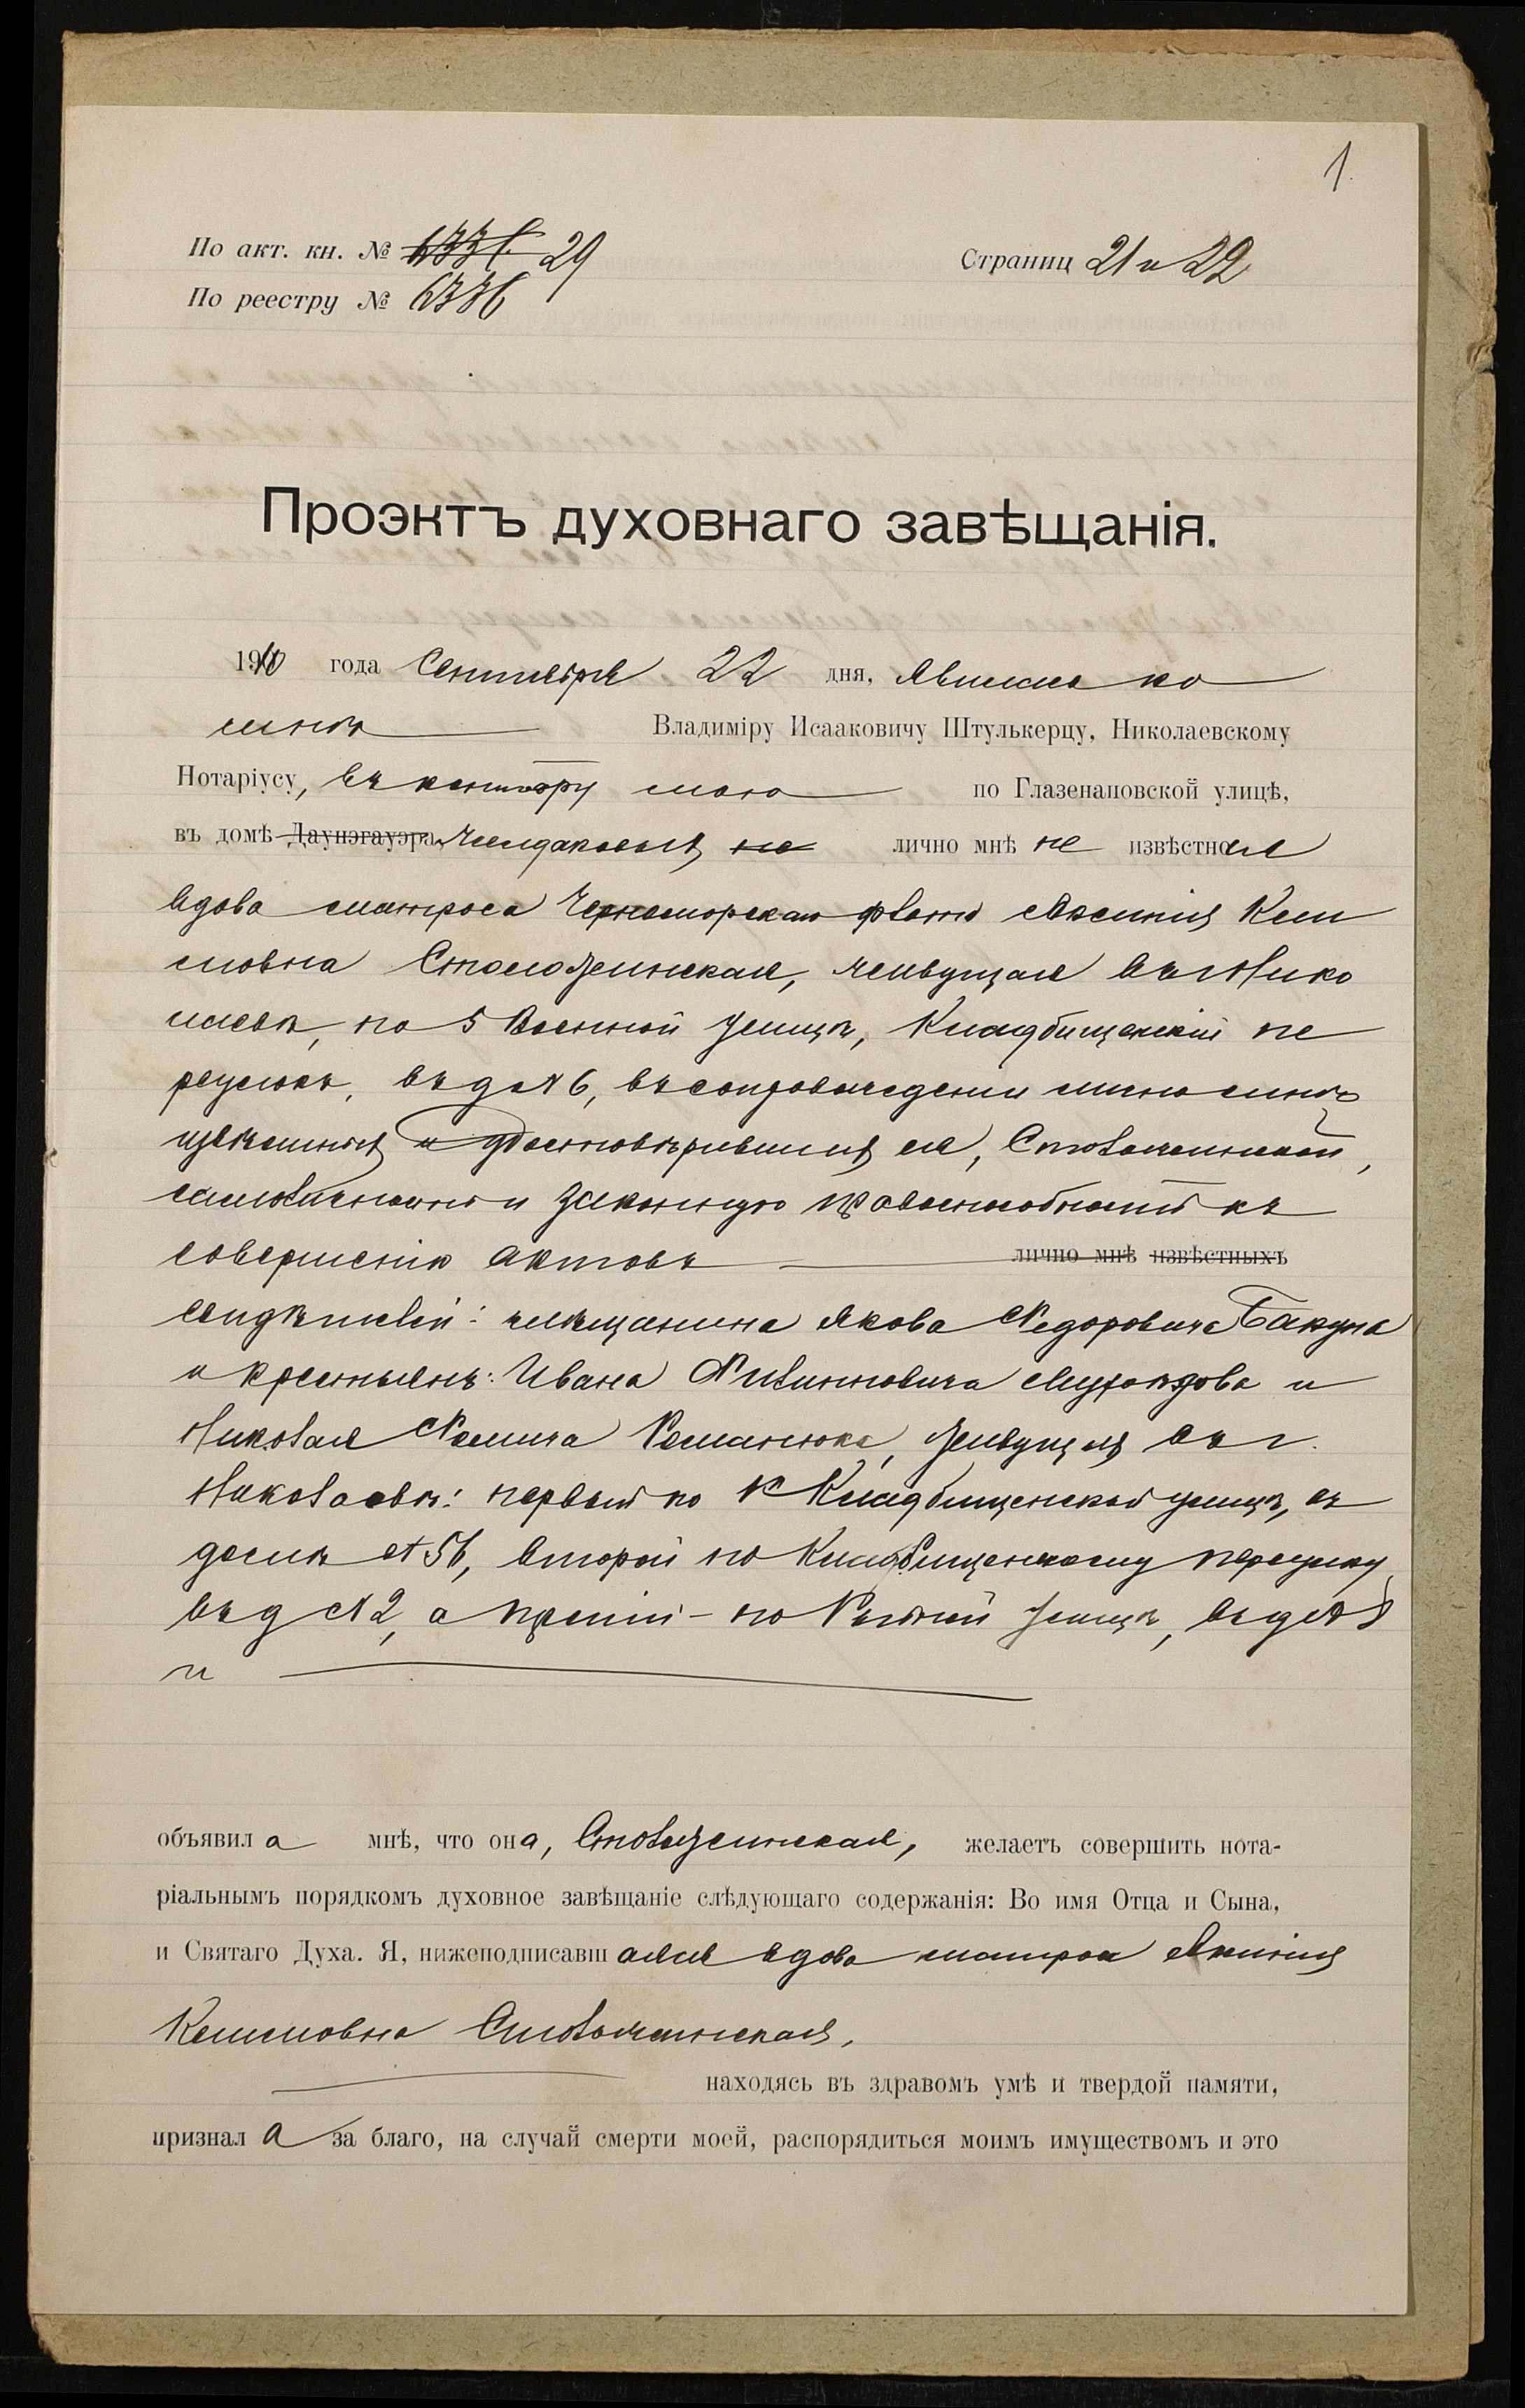 1.
По акт. кн. № 29
Страниц 21 и 22
По реестру № 6336
Проэктъ духовнаго завѣщанія.
1910 года Сентября 22 дня, явилась ко
мнѣ Владиміру Исааковичу Штулькерцу, Николаевскому
Нотаріусу, въ контору мою по Глазенаповской улицѣ,
въ домѣ Даунэгауэра не лично мнѣ не извѣстная
вдова матроса Черноморскаго флота Аксинія Кли
мовна живущая въ г. Нико
лаевѣ, по 5 Военной улицѣ, Кладбищенскій пе
реулокъ, въ д № 6, въ сопровожденіи лично мнѣ
извѣстныхъ и удостовѣрившихъ ея,
самоличность и законную правоспособность къ
совершенію актовъ лично мнѣ извѣстныхъ
свидѣтелей: мѣщанина Якова Федоровича Бакума
и крестьянъ: Ивана Филипповича и
Николая Фомича Романюка, живущихъ въ г.
Николаевѣ: первый по Кладбищенской улицѣ, въ
домѣ № 56, второй по Кладбищенскому переулку,
въ д № 2, а третій - по улицѣ, въ д №
и
объявила мнѣ, что она, желаетъ совершить нота-
ріальнымъ порядкомъ духовное завѣщаніе слѣдующаго содержанія: Во имя Отца и Сына,
и Святаго Духа. Я, нижеподписавшаяся вдова матроса Аксинія
Климовна
находясь въ здравомъ умѣ и твердой памяти,
признала за благо, на случай смерти моей, распорядиться моимъ имуществомъ и это